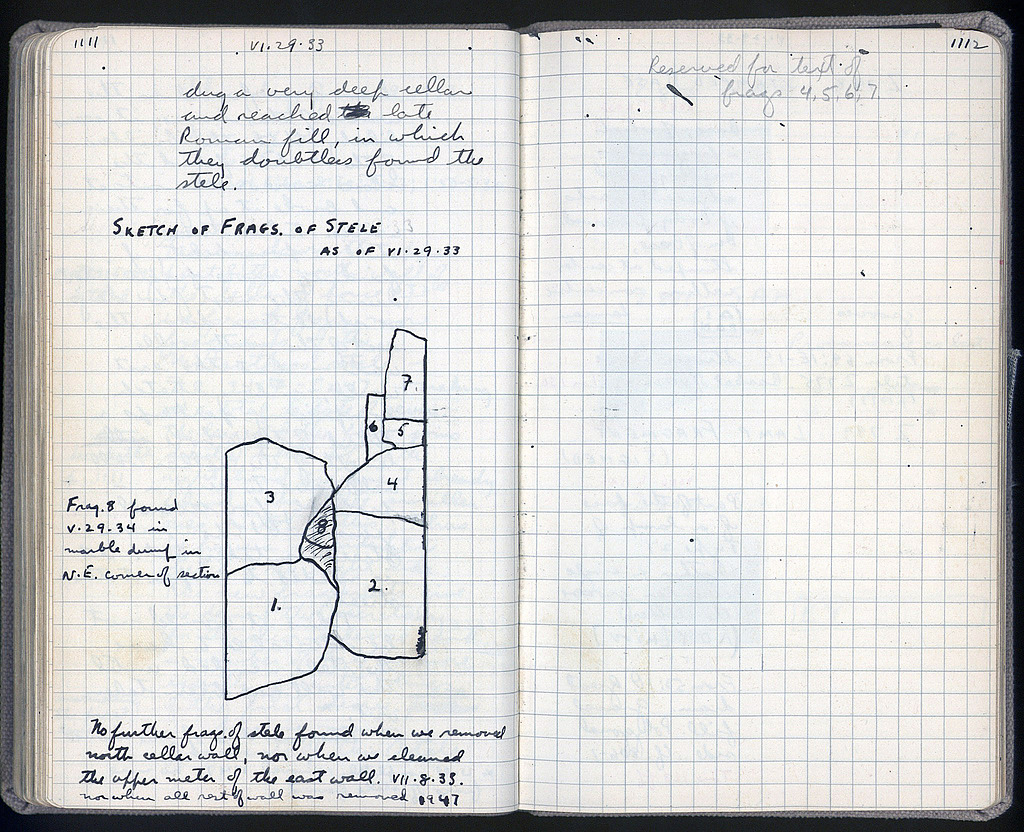 1111
VI.29.33
dug a very deep cellar
and reached late
Roman fill, in which
they doubtless found the
stele.
SKETCH OF FRAGS. OF STELE
AS OF VI.29.33
7.
6
5
4
3
8
2.
1.
Frag. 8 found
V.29.34 in
marble dump in
N.E. corner of section
No further frags. of stele found when we removed
north cellar wall, nor when we cleaned
the upper meter of the east wall. VII.8.33.
nor when all rest of wall was removed 1947
1112
Reserved for text of
frags 4,5,6,7